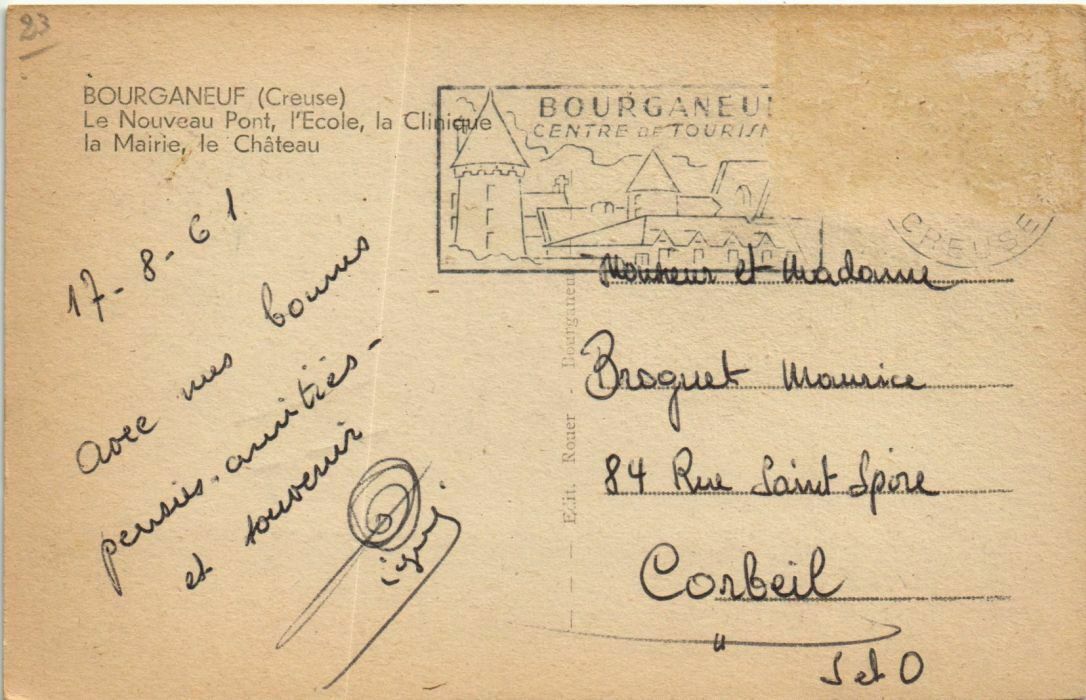 23
BOURGANEUF (Creuse)
Le Nouveau Pont, l'Ecole, la Clinique
la Mairie, le Château
BOURGANEU
CENTRE DE TOURIS
CREUSE
17-8-61
avec mes bonnes
pensées, amitiés-
et souvenir
Edit. Rouer - Bourganeuf
Monsieur et Madame
Broguet Maurice
84 Rue Saint Spire
Corbeil
S et O